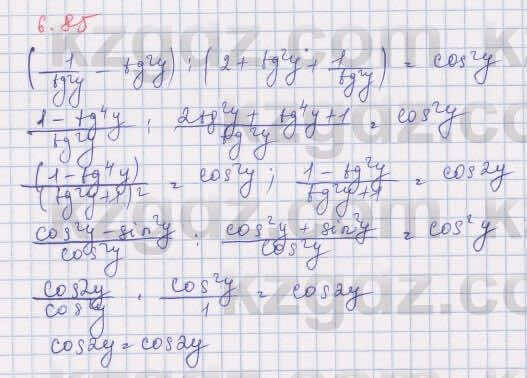 6.85
(1/tg²y - tg²y) : (2 + tg²y + 1/tg²y) = cos²y
(1 - tg⁴y)/tg²y : (2tg²y + tg⁴y + 1)/tg²y = cos²y
(1 - tg⁴y)/(tg²y + 1)² = cos²y ; (1 - tg²y)/(tg²y + 1) = cos2y
(cos²y - sin²y)/cos²y : (cos²y + sin²y)/cos²y = cos²y
cos2y/cos²y · cos²y/1 = cos2y
cos2y = cos2y
kzgdz.com